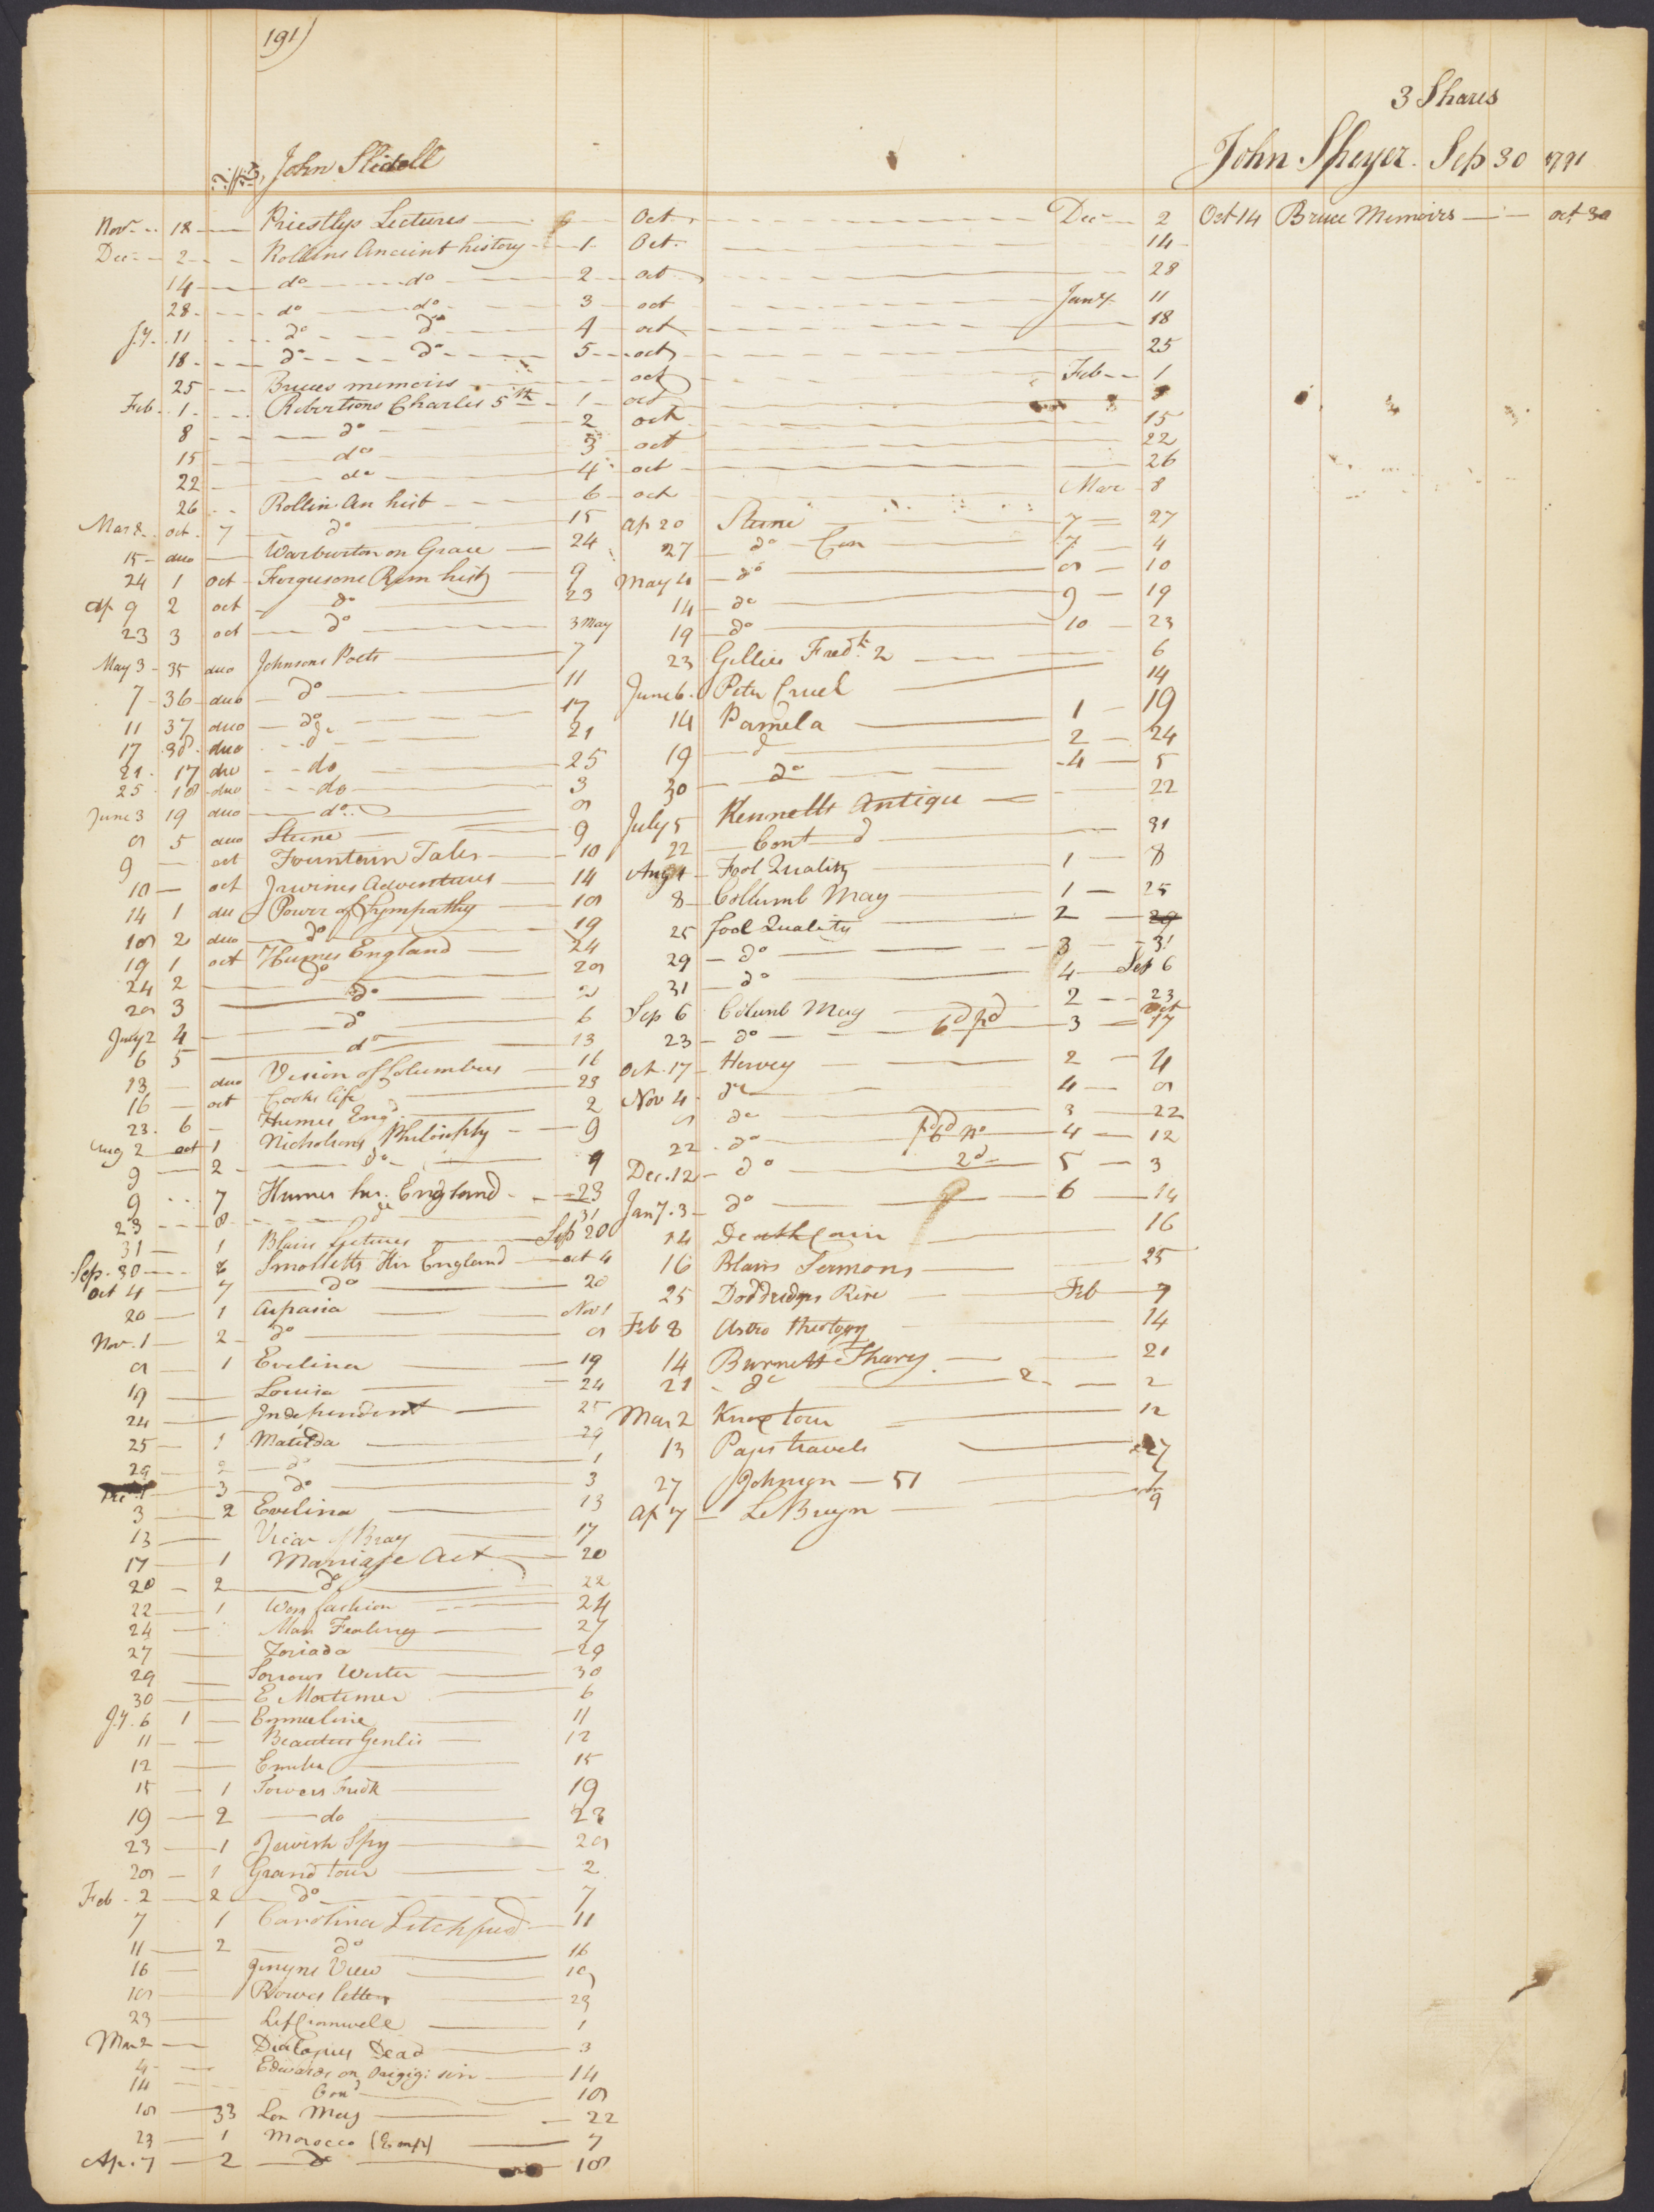 191)
3 Shares
John Slidell
John Speyer. Sep 30 1791
Nov 18 Priestlys Lectures Oct Dec 2
Dec 2 Rollins Ancient history 1 Oct. 14
14 do do 2 oct 28
28 do do 3 oct Jany 11
Jy 11 do do 4 oct 18
18 do do 5 oct 25
25 Bruces memoirs oct Feb 1
Feb 1 Robertsons Charles 5th 1 oct 8
8 do 2 oct 15
15 do 3 oct 22
22 do 4 oct 26
26 Rollin. An hist 6 oct Mar 8
Mar 8 oct 7 do 15
15 duo Warburton on Grace 24
24 1 oct Fergusons Rom hist 9
Ap 9 2 oct do 23
23 3 oct do 3 May
May 3 35 duo Johnsons Poets 7
7 36 duo do 11
11 37 duo do 17
17 38 duo do 21
21 17 duo do 25
25 18 duo do 3
June 3 19 duo do 8
8 5 duo Sterne 9
9 oct Fountain Tales 10
10 oct Irwines Adventures 14
14 1 duo Power of Sympathy 18
18 2 duo do 19
19 1 oct Humes England 24
24 2 do 28
28 3 do 2
July 2 4 do 6
6 5 do 13
13 duo Vision of Columbus 16
16 oct Cooks life 23
23 6 Humes Engd 2
Aug 2 oct 1 Nicholsons Philosophy 9
9 2 do 9
9 7 Humes his. England 23
23 8 do 31
31 1 Blairs Lectures Sep 20
Sep. 30 Smolletts His England oct 4
oct 4 7 do 20
20 1 Aspasia Nov 1
Nov. 1 2 do 8
8 1 Evelina 19
19 Louisa 24
24 Independent 25
25 1 Matilda 29
29 2 do 1
Dec 1 3 do 3
3 2 Evelina 13
13 Vicar of Bray 17
17 1 Marriage Act 20
20 2 do 22
22 1 Wom fashion 24
24 Man Fealing 27
27 Zoriada 29
29 Sorrows Werter 30
30 E Mortimer 6
Jy. 6 1 Emmeline 11
11 Beauties Genlis 12
12 Emilia 15
15 1 Towers Fredk 19
19 2 do 23
23 1 Jewish Spy 28
28 1 Grand tour 2
Feb 2 2 do 7
7 1 Carolina Litchfield 11
11 2 do 16
16 Gwyns View 18
18 Rowes letters 23
23 Lif Cromwell 1
Mar 2 Dialogues Dead 3
4 Edwards on Origig: sin 14
14 Cond 18
18 33 Lon Mag 22
23 1 Morocco (Emp) 7
Ap. 7 2 do 18
Ap 20 Sterne 7 27
27 do Con 7 4
May 4 do 8 10
14 do 9 19
19 do 10 23
23 Gillies Fredk 2 6
June 6 Peter Cruel 14
14 Pamela 1 19
19 do 2 24
30 do 4 5
July 5 Kennetts Antique 22
22 Contd 31
Aug 1 Fool Quality 1 8
8 Collumb Mag 1 25
25 fool Quality 2 29
29 do 3 31
31 do 4 Sep 6
Sep 6 Columb Mag 2 23
23 do 6d pd 3 Oct 17
Oct. 17 Hervey 2 4
Nov 4 do 4 8
8 do 3 22
22 do 4 12
Dec. 12 do 2d 5 3
Jany. 3 do 6 14
14 Death Cain 16
16 Blairs Sermons 25
25 Doddridges Rise Feb 7
Feb 8 Astro theology 14
14 Burnetts Thary 21
21 do 2 2
Mar 2 Knox tour 12
13 Pages travels 27
27 Johnson 51 7
Ap 7 Le Bruyn 9
Oct 14 Bruce Memoirs oct 30